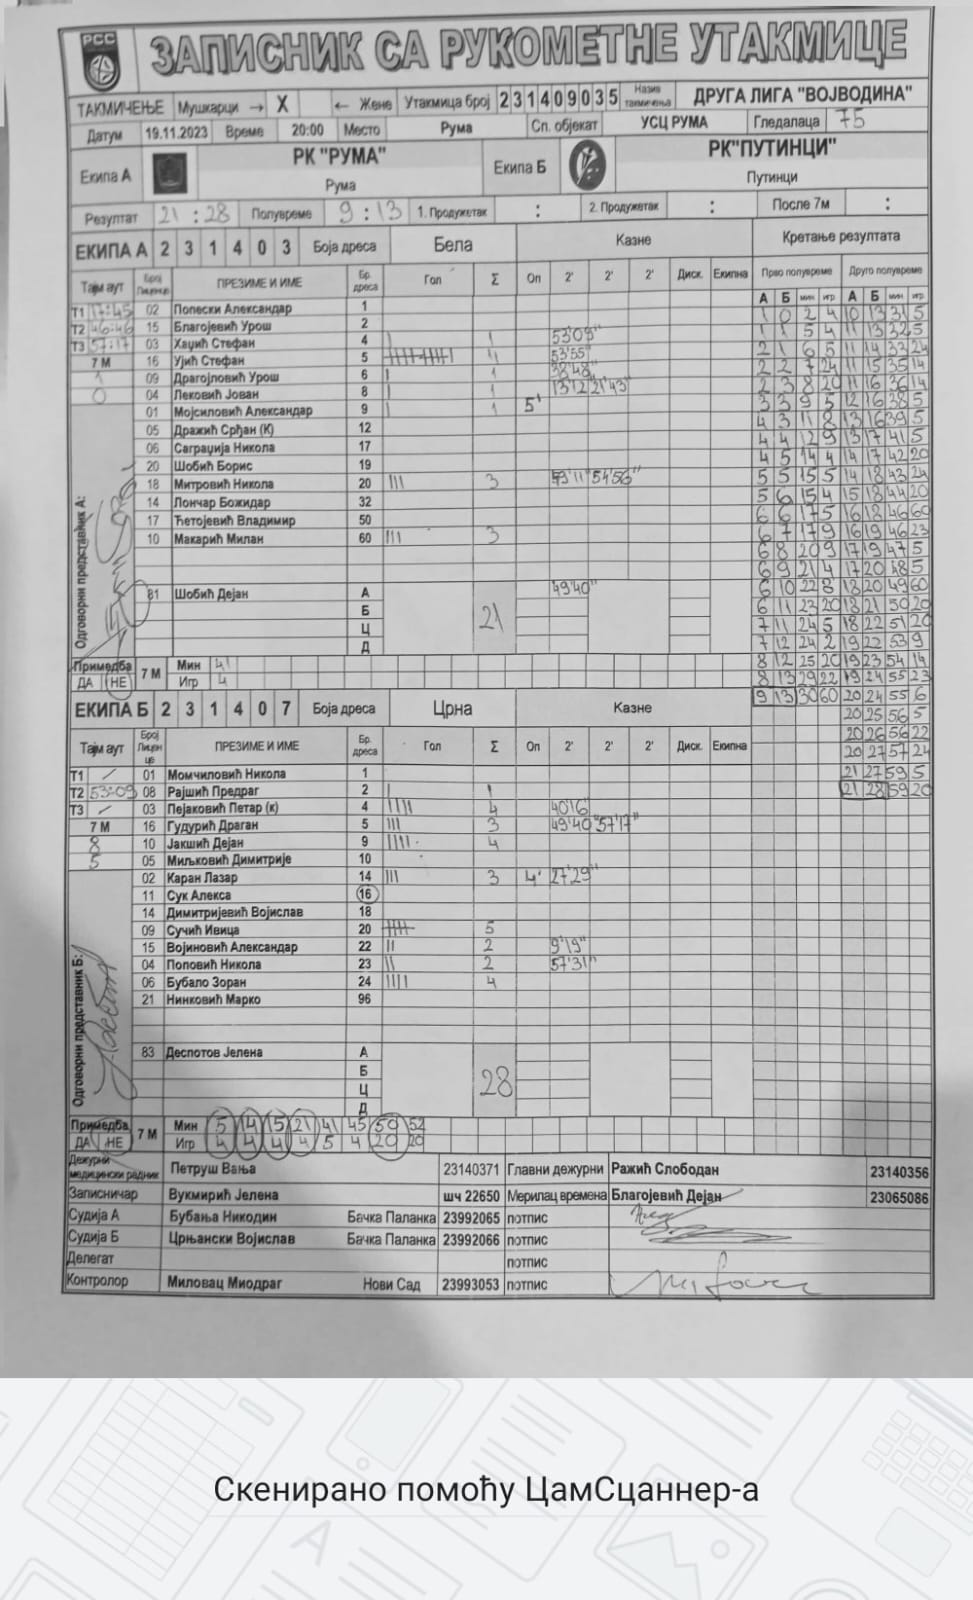 РСС
ЗАПИСНИК СА РУКОМЕТНЕ УТАКМИЦЕ
ТАКМИЧЕЊЕ Мушкарци → X ← Жене Утакмица број 2 3 1 4 0 9 0 3 5 Назив такмичења ДРУГА ЛИГА "ВОЈВОДИНА"
Датум 19.11.2023 Време 20:00 Место Рума Сп. објекат УСЦ РУМА Гледалаца 75
Екипа А РК "РУМА" Рума Екипа Б РК"ПУТИНЦИ" Путинци
Резултат 21 : 28 Полувреме 9 : 13 1. Продужетак : 2. Продужетак : После 7м :
ЕКИПА А 2 3 1 4 0 3 Боја дреса Бела Казне Кретање резултата
Тајм аут Број Лиценце ПРЕЗИМЕ И ИМЕ Бр. дреса Гол Σ Оп 2' 2' 2' Диск. Екипна Прво полувреме Друго полувреме
А Б мин игр А Б мин игр
Т1 17:45 02 Попески Александар 1
Т2 46:46 15 Благојевић Урош 2
Т3 57:17 03 Хаџић Стефан 4 | 1 53'09"
7 М 16 Ујић Стефан 5 11 53'55"
1 09 Драгојловић Урош 6 | 1 38'48"
0 04 Лековић Јован 8 | 1 13'12" 21'43"
01 Мојсиловић Александар 9 | 1 5'
05 Дражић Срђан (К) 12
06 Саграџија Никола 17
20 Шобић Борис 19
18 Митровић Никола 20 ||| 3 54'56"
14 Лончар Божидар 32
17 Ћетојевић Владимир 50
10 Макарић Милан 60 ||| 3
81 Шобић Дејан А 49'40"
Б
Ц
Д
21
Одговорни представник А:
1 0 2 4 10 13 31 5
1 1 5 4 11 13 32 5
2 1 6 5 11 14 33 24
2 2 7 24 11 15 35 14
2 3 8 20 11 16 36 14
3 3 9 5 12 16 38 5
4 3 11 8 13 16 39 5
4 4 12 9 13 17 41 5
4 5 14 4 14 17 42 20
5 5 15 5 14 18 43 24
5 6 15 4 15 18 44 20
6 6 17 5 16 18 46 60
6 7 17 9 16 19 46 23
6 8 20 9 17 19 47 5
6 9 21 4 17 20 48 5
6 10 22 8 18 20 49 60
6 11 23 20 18 21 50 20
7 11 24 5 18 22 51 20
7 12 24 2 19 22 53 9
8 12 25 20 19 23 54 14
8 13 29 22 19 24 55 23
9 13 30 60 20 24 55 6
20 25 56 5
20 26 56 22
20 27 57 24
21 27 59 5
21 28 59 20
Примедба ДА НЕ 7 М Мин 41
Игр 4
ЕКИПА Б 2 3 1 4 0 7 Боја дреса Црна Казне
Тајм аут Број Лиценце ПРЕЗИМЕ И ИМЕ Бр. дреса Гол Σ Оп 2' 2' 2' Диск. Екипна
Т1 / 01 Момчиловић Никола 1
Т2 53:09 08 Рајшић Предраг 2 | 1
Т3 / 03 Пејаковић Петар (к) 4 |||| 4 40'16"
7 М 16 Гудурић Драган 5 ||| 3 49'40" 57'17"
8 10 Јакшић Дејан 9 |||| 4
5 05 Миљковић Димитрије 10
02 Каран Лазар 14 ||| 3 4' 27'29"
11 Сук Алекса 16
14 Димитријевић Војислав 18
09 Сучић Ивица 20 5
15 Војиновић Александар 22 || 2 9'19"
04 Поповић Никола 23 || 2 57'31"
06 Бубало Зоран 24 |||| 4
21 Нинковић Марко 96
83 Деспотов Јелена А
Б
Ц
Д
28
Одговорни представник Б:
Примедба ДА НЕ 7 М Мин 5 14 15 21 41 45 50 52
Игр 4 4 4 4 5 4 20 20
Дежурни медицински радник Петруш Вања 23140371 Главни дежурни Ражић Слободан 23140356
Записничар Вукмирић Јелена шч 22650 Мерилац времена Благојевић Дејан 23065086
Судија А Бубања Никодин Бачка Паланка 23992065 потпис
Судија Б Црњански Војислав Бачка Паланка 23992066 потпис
Делегат потпис
Контролор Миловац Миодраг Нови Сад 23993053 потпис
Скенирано помоћу ЦамСцаннер-а